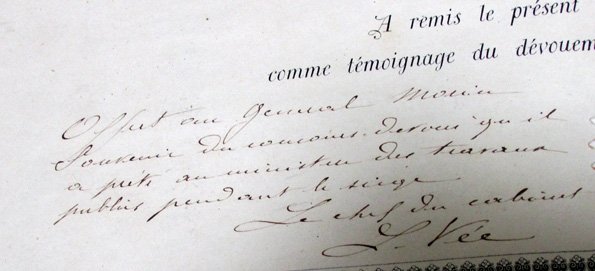 A remis le présent
comme témoignage du dévouem
Offert au General Morin
Souvenir du concours devoué qu'il
a prêté au ministère des travaux
publics pendant le siege
Le chef du cabinet
L. Vée